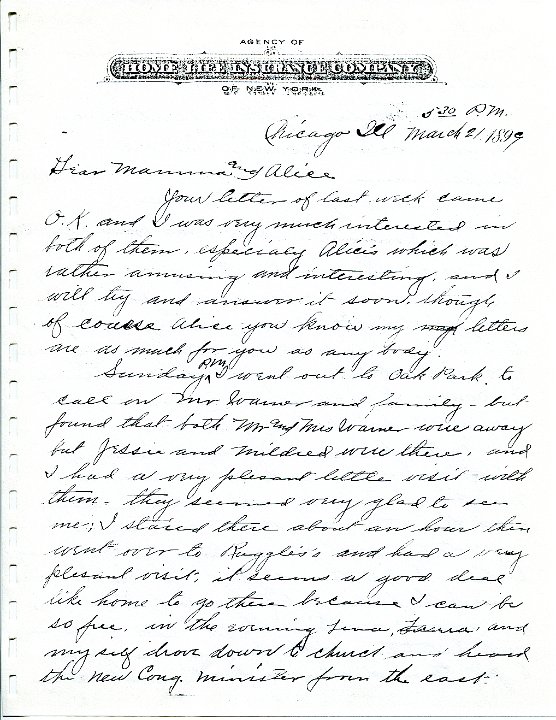 AGENCY OF
HOME LIFE INSURANCE COMPANY
OF NEW YORK
5 30 P.M.
Chicago Ill March 21 1899
Dear Mamma and Alice
Your letter of last week came
O.K. and I was very much interested in
both of them, especialy Alicis which was
rather amusing and interesting, and I
will try and answer it soon. though,
of course Alice you know my letters
are as much for you as any body.
Sunday P.M. I went out to Oak Park, to
call on Mr Warner and family - but
found that both Mr and Mrs Warner were away
but Jessie and Mildred were there, and
I had a very plesant little visit with
them - they seemed very glad to see
me; I staied there about an hour then
went over to Ruggles's and had a very
plesant visit, it seems a good deal
like home to go there because I can be
so free. in the evening Lena, and
my self drove down to church and heard
the new Cong. minister from the east.